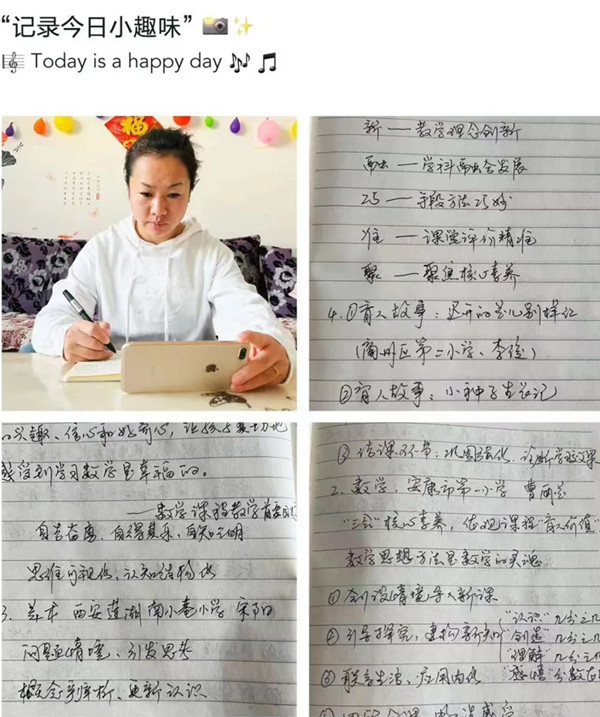 “记录今日小趣味”
Today is a happy day
福
新 — 教学理念创新
融 — 学科融合发展
巧 — 手段方法巧妙
准 — 课堂评价精准
聚 — 聚焦核心素养
4.①育人故事:迟开的花儿别样红
(商州区第二小学、李
②育人故事:小种子生长记
兴趣、信心和好奇心,让孩子
感受到学习数学是幸福的。
— 数学课程教学
自告奋勇,自得其乐,自知之明
思维可视化、认知结构化
3. 美术 西安莲湖南小巷小学 宋阳
问题
引发思考
更新认识
2. 数学,安康市第一小学
“三会”核心素养,体现课程“育人价值”
数学思想方法是数学的灵魂
①创设情境导入新课
②引导探究,建构新知
“认识”几分之几
“创造”几分之几
“理解”几分之几
③联系生活,应用内化
“感悟”分数